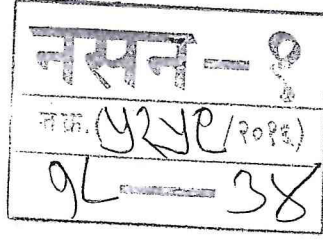 नसन-१
त.क्र.(५२५९/२०१६)
१८ — ३४